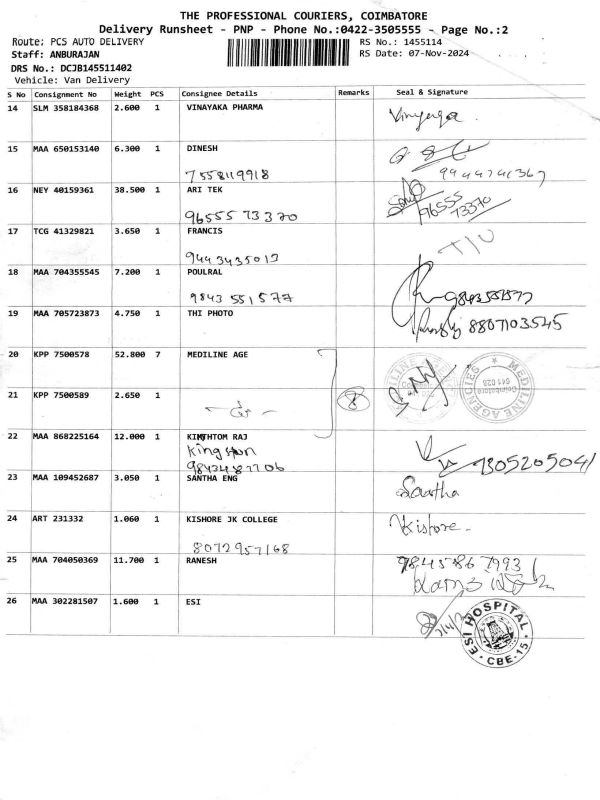 THE PROFESSIONAL COURIERS, COIMBATORE
Delivery Runsheet - PNP - Phone No.:0422-3505555 - Page No.:2
Route: PCS AUTO DELIVERY RS No.: 1455114
Staff: ANBURAJAN RS Date: 07-Nov-2024
DRS No.: DCJB145511402
Vehicle: Van Delivery
S No Consignment No Weight PCS Consignee Details Remarks Seal & Signature
14 SLM 358184368 2.600 1 VINAYAKA PHARMA
15 MAA 650153140 6.300 1 DINESH
7558119918
16 NEY 40159361 38.500 1 ARI TEK
96555 73370 96555
73370
17 TCG 41329821 3.650 1 FRANCIS
9443435013
18 MAA 704355545 7.200 1 POULRAL
9843 551577
19 MAA 705723873 4.750 1 THI PHOTO 8807103545
20 KPP 7500578 52.800 7 MEDILINE AGE
MEDILINE AGENCIES
Coimbatore
641 028
21 KPP 7500589 2.650 1 8
22 MAA 868225164 12.000 1 RAJ
Kingston 7305205041
23 MAA 109452687 3.050 1 SANTHA ENG Santha
24 ART 231332 1.060 1 KISHORE JK COLLEGE Kishore
8072957168
25 MAA 704050369 11.700 1 RANESH
26 MAA 302281507 1.600 1 ESI
ESI HOSPITAL
CBE-15